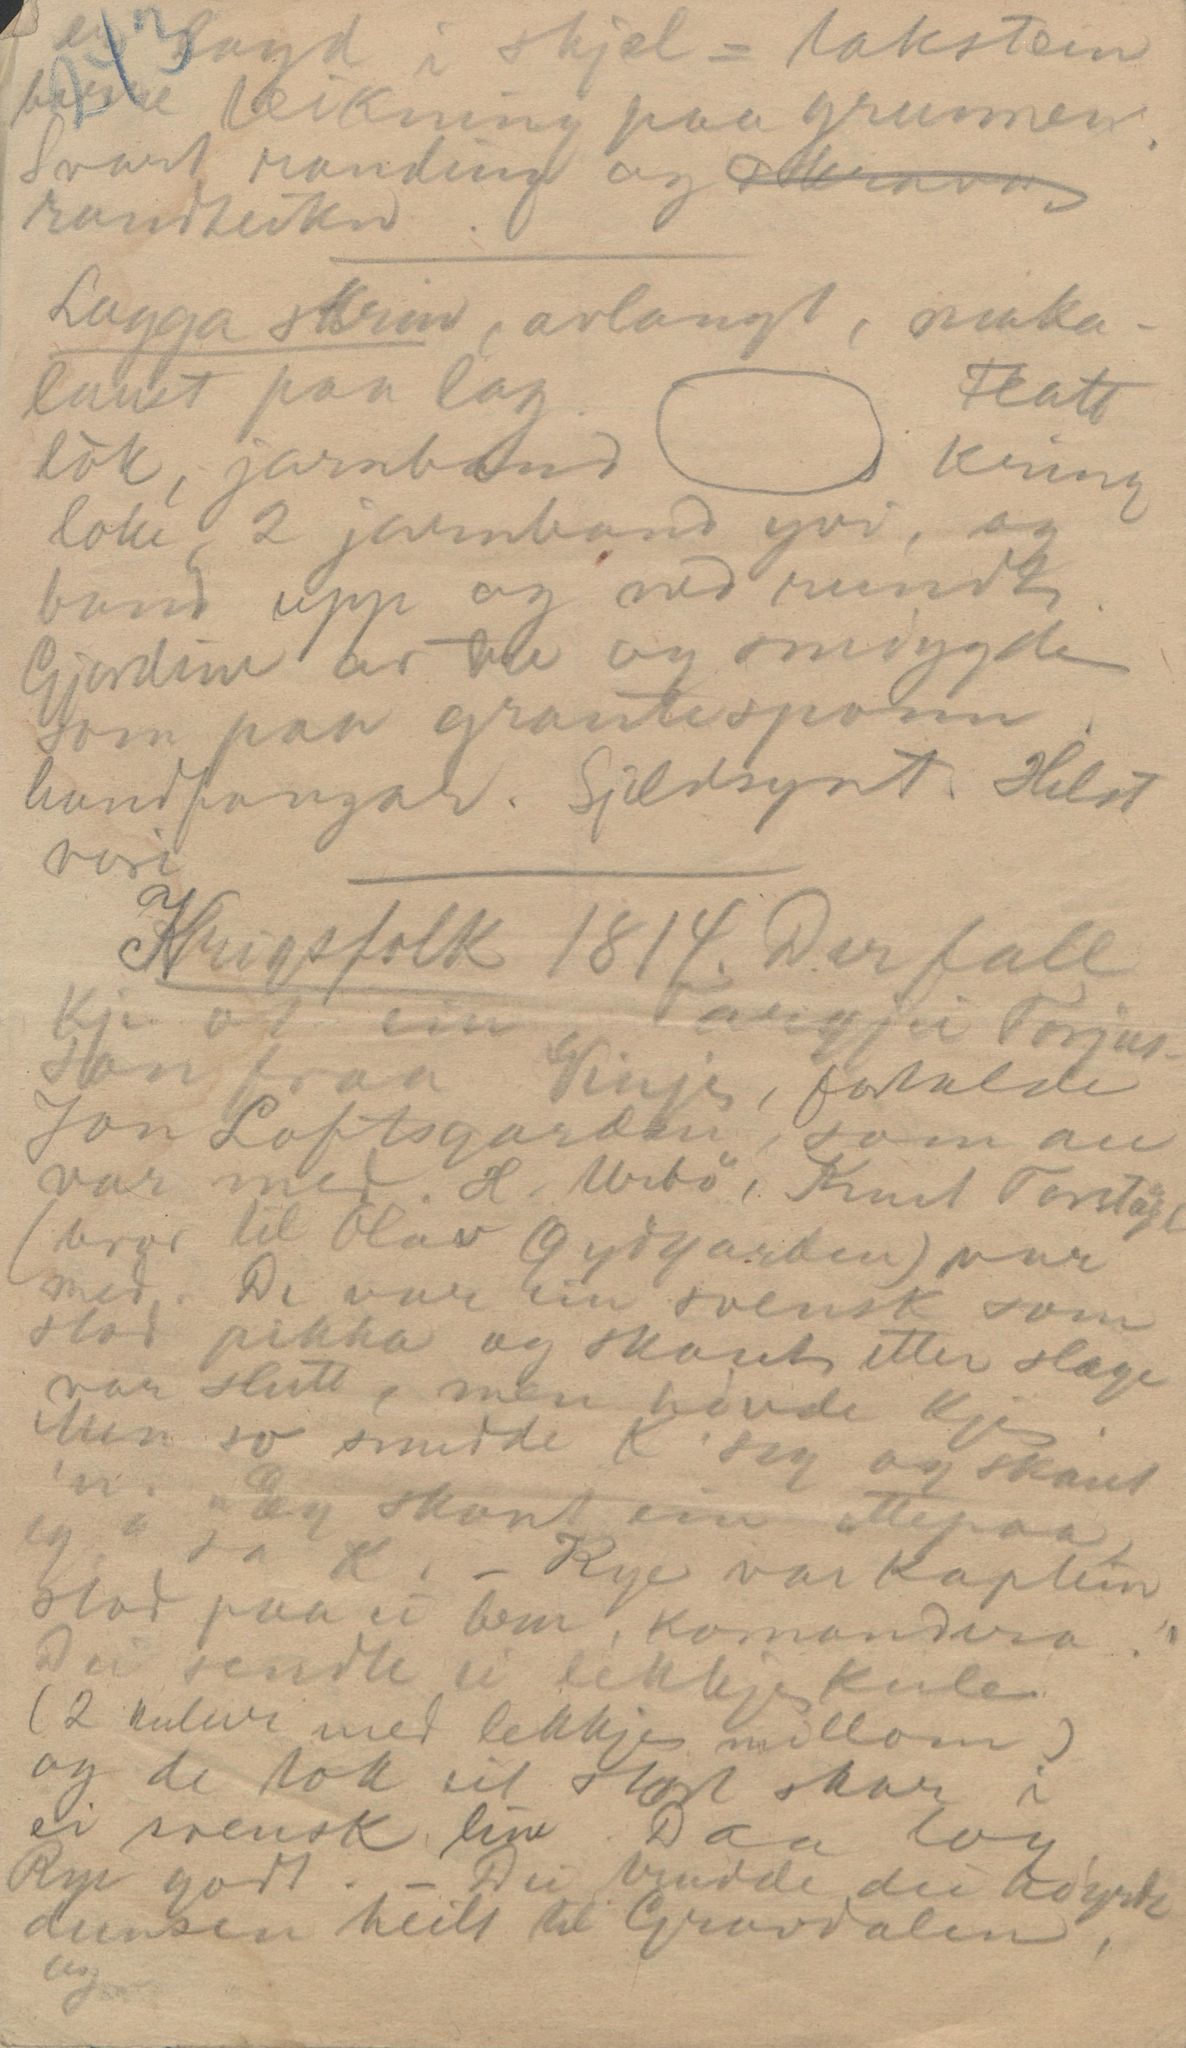 er lagd i skjel = takstein
berre teikning paa grunnen.
Svart randing og
randteikn.
Lagga skrin, avlangt, maka-
laust paa lag. Flatt
lok, jarnband kring
loke, 2 jarnband yvi, og
band upp og ned rundt.
Gjordine av tre og smøygde
som paa grautespann,
handfangar. Sjeldsynt. Helst
vori
Krigsfolk 1814. Der fall
Kje av ein, Targjei Torjus-
son fraa Vinje, fortalde
Jon Loftsgarden, som au
var med. H. Urbø, Knut
(bror til Olav Gydgarden) var
med. De var ein svensk som
stod pikka og skaut etter slage
var slutt, men havde Kje.
Men so snudde K seg og skaut
'n. "Eg skaut ein attepaa,
eg" sa K. – Rye var kaptein
stod paa ei ber, komandera.
Dei sendte ei lekkjekule
(2 kulur med lekkje millom)
og de tok eit stort skar i
ei svensk line. Daa log
Rye godt. – Dei trudde dei høyrde
dunsen heilt til Gravdalen,
og